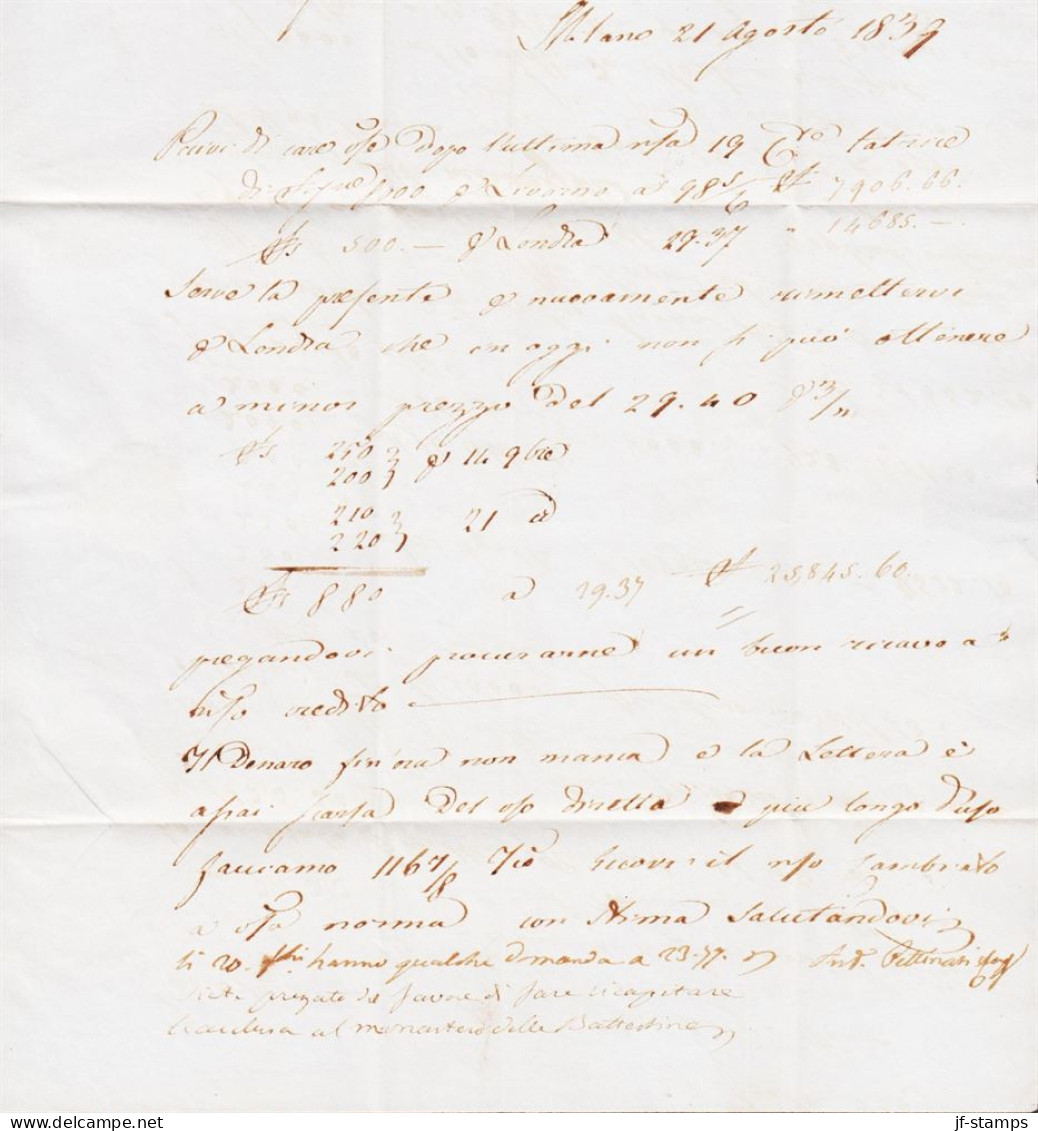 Milano 21 Agosto 1839
Privi di care vse dopo l'ultima nsa 19 Cro latrice
di 1500 p Livorno a 98 5/6 7906.66.
500.— p Londra 29.37 " 14685.—
Serve la presente p nuovamente rimettervi
p Londra che in oggi non si può ottenere
a minor prezzo del 29.40 p 3/m
250
200 p 14 9bre
210
220 21 d
880 a 29.37 25,845.60.
pregandovi procurarne un buon ricavo a
nso credito
Il Denaro fin'ora non manca e la Lettera è
assai scarsa del vso diretta e più longo d'uso
facciamo 116 7/8 il nso
a vsa norma con stima Salutandovi
li 20 hanno qualche domanda a 23.77. Ant. Pettinati
Siete pregato del favore di fare ricapitare
l'acclusa al monastero delle Battestine
jf-stamps